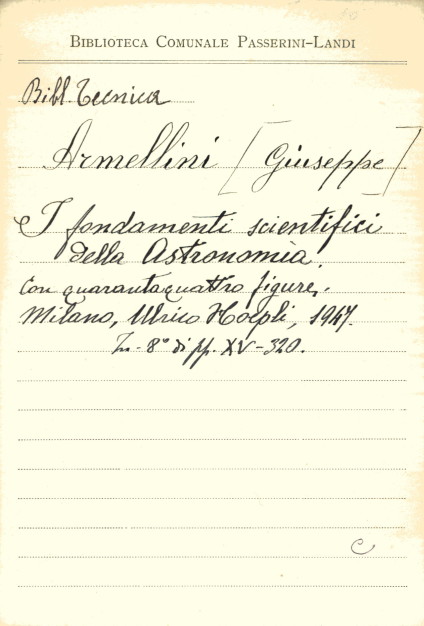 BIBLIOTECA COMUNALE PASSERINI-LANDI
Bibl. Tecnica
Armellini [Giuseppe]
I fondamenti scientifici
della Astronomia.
Con quarantaquattro figure.
Milano, Ulrico Hoepli, 1947.
In-8° di pp. XV-320.
C